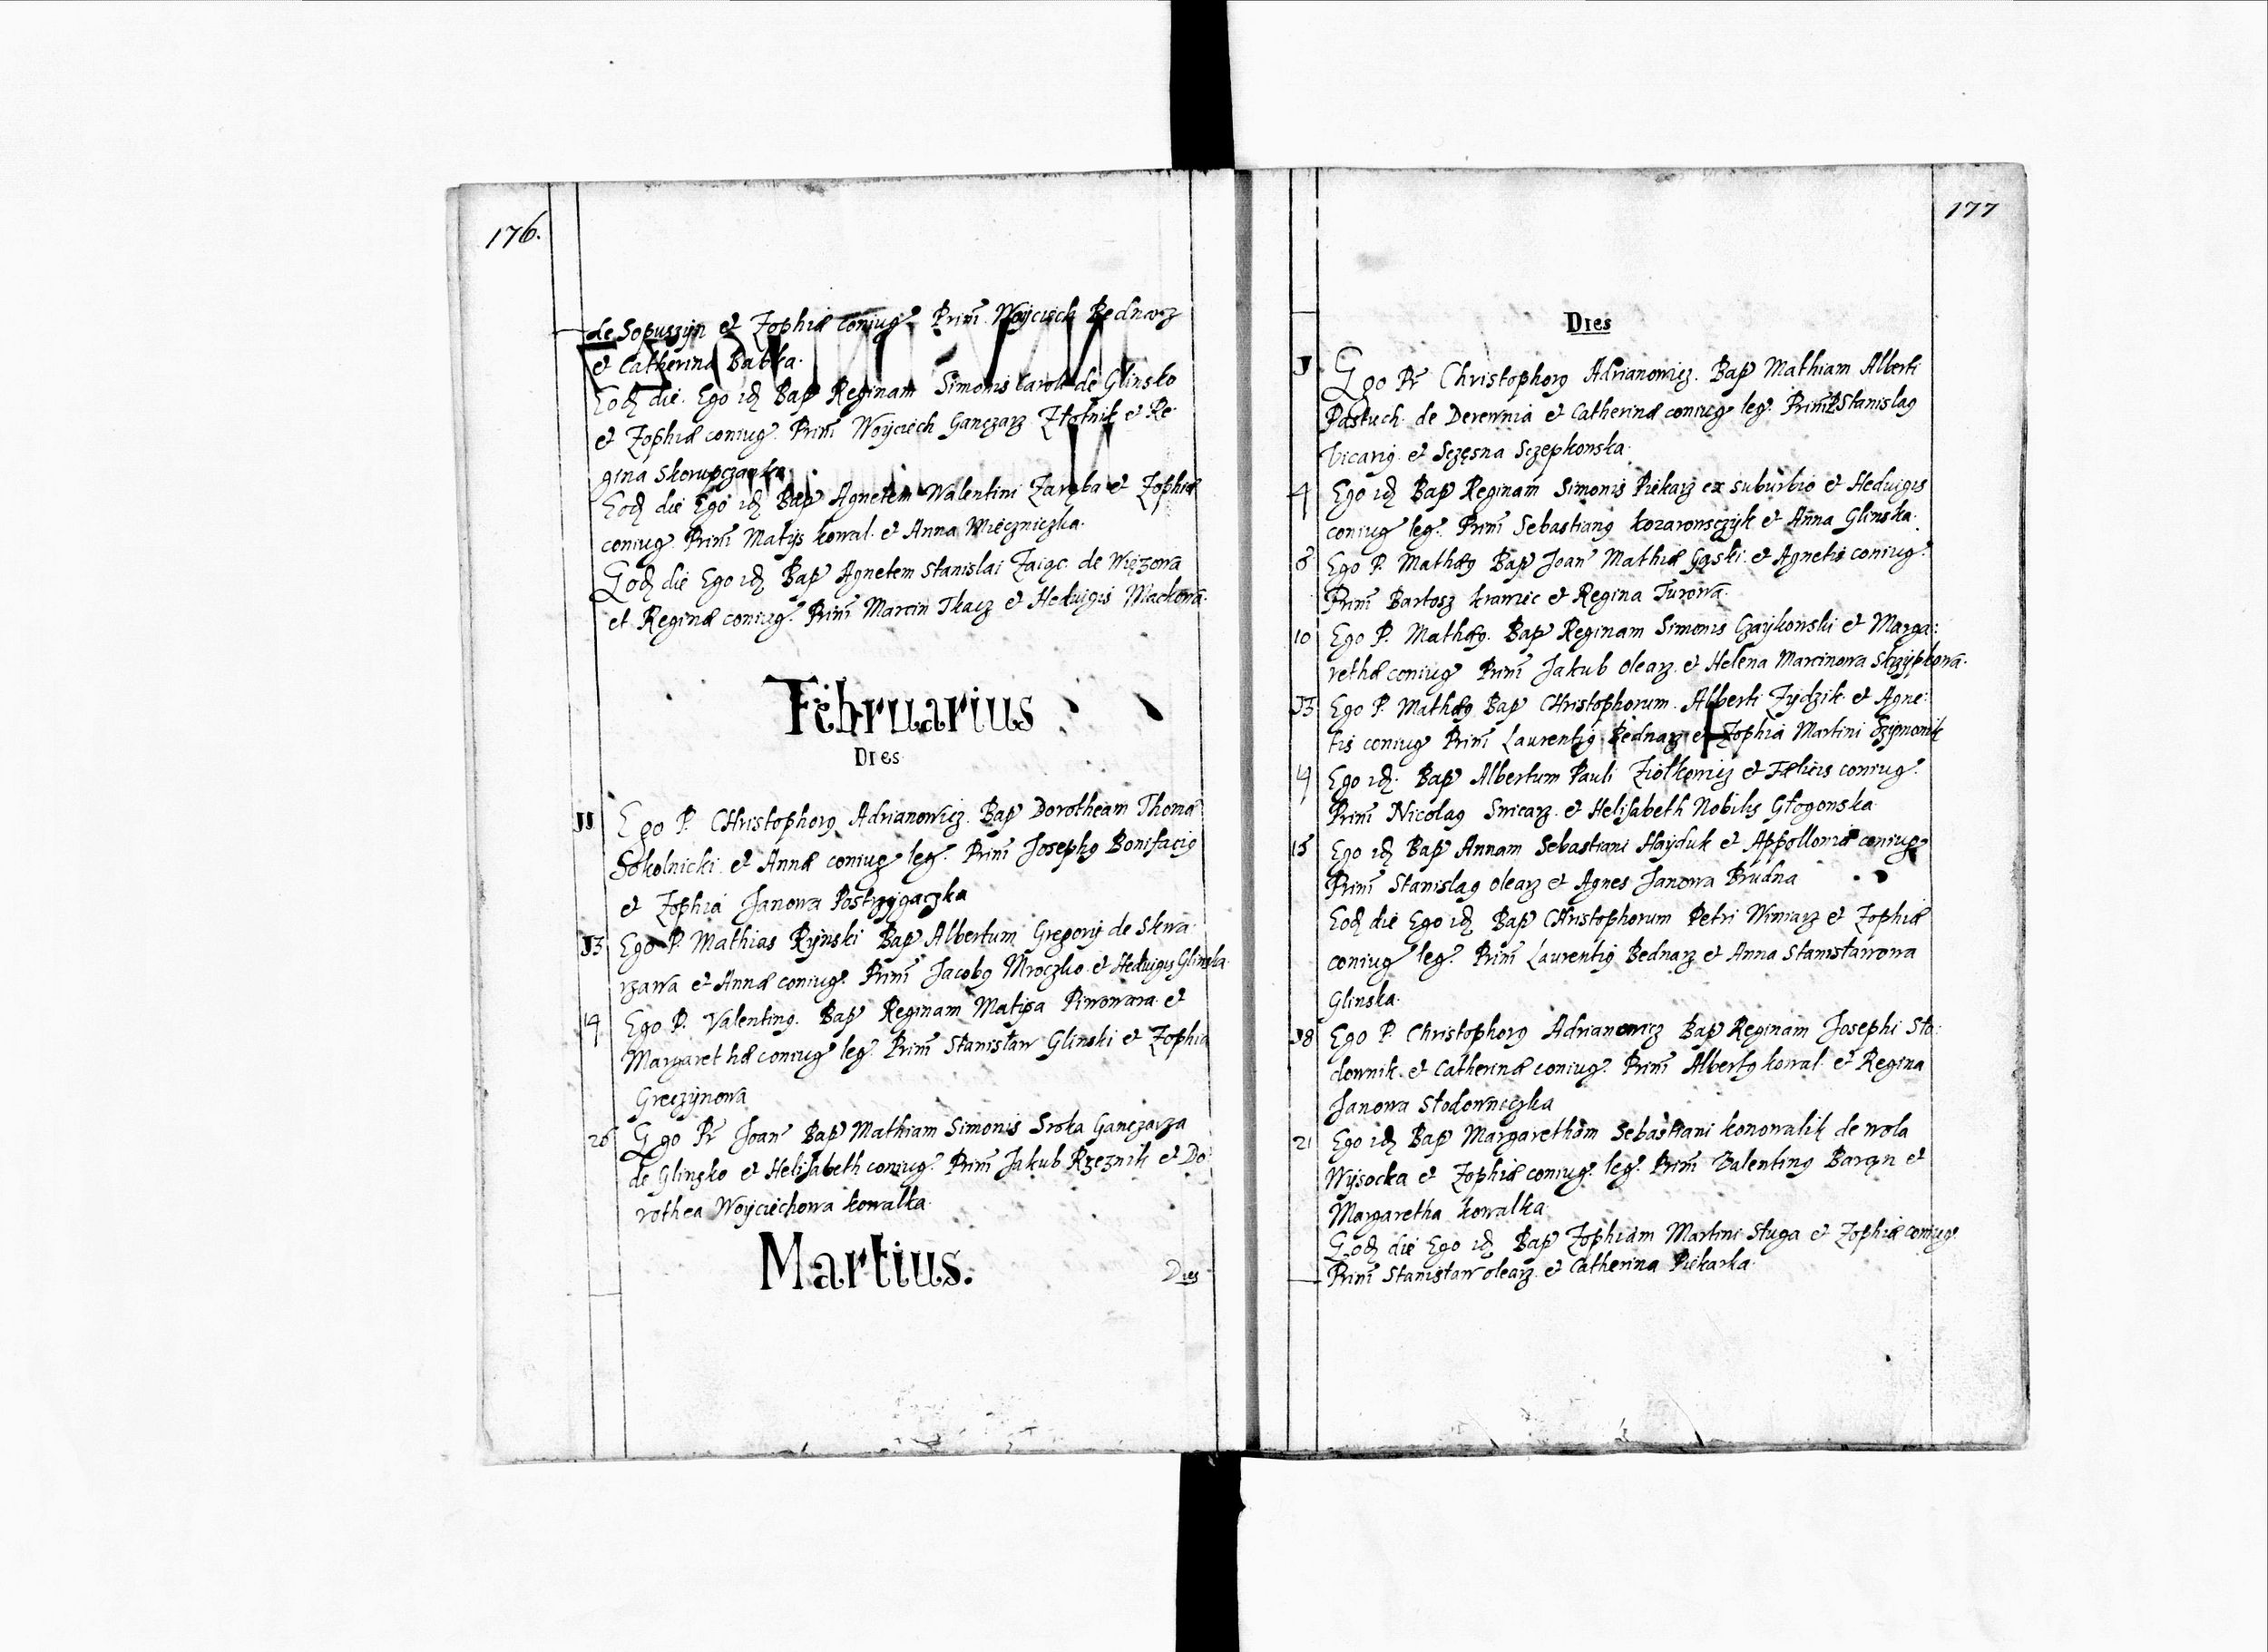 176.
de Sopuszyn et Zophiæ coniug. Prim. Woyciech Bednarz
et Catherina Babka.
Eod die. Ego id Bap Reginam Simonis Carok de Glinsko
et Zophiæ coniug. Prim Woyciech Ganczarz Złotnik et Re
gina Skorupczanka
Eod die Ego id Bap Agnetem Walentini Zaręba et Zophiæ
coniug. Prim Matys kowal. et Anna Mieczniczka.
Eod die Ego id Bap Agnetem Stanislai Zaiąc de Więzowa
et Reginæ coniug. Prim Marcin Tkacz et Hedvigis Mackowa.
Februarius
Dies
11 Ego P. CHristophorg Adrianowicz. Bap Dorotheam Thoma
Sokolnicki. et Annæ coniug leg. Prim Josephg Bonifacig
et Zophia Janowa Postrzygaczka
13 Ego P. Mathias Rynski Bap Albertum Gregorij de Skwa
rzawa et Annæ coniug. Prim Jacobg Mroczko et Hedvigis Glinska
14 Ego P. Valenting. Bap Reginam Matysa Piwowara et
Margarethæ coniug leg. Prim Stanisław Glinski et Zophia
Greczynowa
26 Ego Pr Joan Bap Mathiam Simonis Sroka Ganczarza
de Glinsko et Helisabeth coniug. Prim Jakub Rzeznik et Do
rothea Woyciechowa kowalka.
Martius.
Dies
177
Dies
3 Ego Pr Christophorg Adrianowicz. Bap Mathiam Alberti
Pastuch. de Derewnia et Catherinæ coniug leg. Prim P Stanislag
Vicarig. et Sczęsna Sczepkonska.
4 Ego id Bap Reginam Simonis Piekarz ex suburbio et Hedvigis
coniug leg. Prim Sebastiang kozarowsczyk et Anna Glinska.
8 Ego P. Mathæg Bap Joan Mathiæ Gąski. et Agnetis coniug.
Prim Bartosz krawiec et Regina Turowa.
10 Ego P. Mathæg. Bap Reginam Simonis Czaykonski et Marga:
rethæ coniug Prim Jakub Olearz. et Helena Marcinowa Skrzypkowa.
13 Ego P. Mathæg Bap CHristophorum. Alberti Zydzik. et Agne:
tis coniug Prim Laurentig Bednarz et Zophia Martini Szynonik
14 Ego id. Bap Albertum Pauli Ziołkowicz et Fælicis coniug.
Prim Nicolag Swicarz. et Helisabeth Nobilis Głogonska
15 Ego id Bap Annam Sebastiani Hayduk et Appolloniæ coniug
Prim Stanislag olearz et Agnes Janowa Brudna
Eod die Ego id Bap CHristophorum Petri Winiarz et Zophiæ
coniug leg. Prim Laurentig Bednarz et Anna Stanisławowa
Glinska.
18 Ego P. Christophorg Adrianowicz Bap Reginam Josephi Sło:
downik. et Catherinæ coniug. Prim Albertg kowal. et Regina
Janowa Słodowniczka
21 Ego id Bap Margaretham Sebastiani konowalik de wola
Wysocka et Zophiæ coniug. leg. Prim Valenting Baran et
Margaretha kowalka.
Eod die Ego id Bap Zophiam Martini Sługa et Zophiæ coniug.
Prim Stanisław olearz. et Catherina Piekarka.